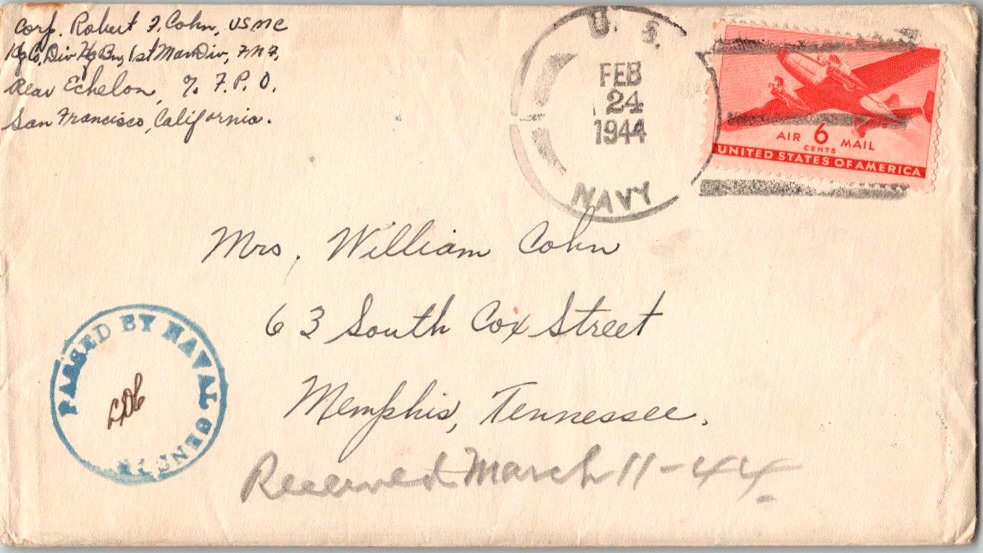 Corp. Robert F. Cohn, USMC
Hq Co, Div Hq Bn, 1st Mar Div, F.M.F.
Rear Echelon, % F.P.O.
San Francisco, California.
U. S.
FEB
24
1944
NAVY
AIR 6 MAIL
CENTS
UNITED STATES OF AMERICA
Mrs. William Cohn
63 South Cox Street
Memphis, Tennessee.
Received March 11-44
PASSED BY NAVAL CENSOR